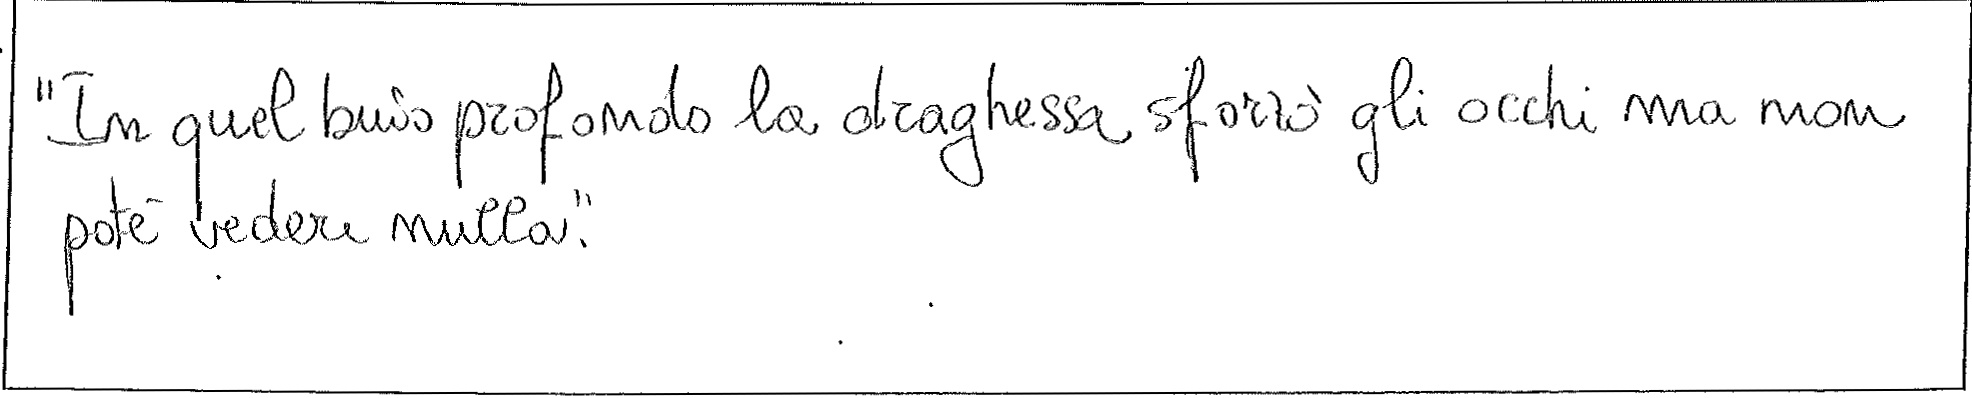 "In quel buio profondo la draghessa sforzò gli occhi ma non
poté vedere nulla."